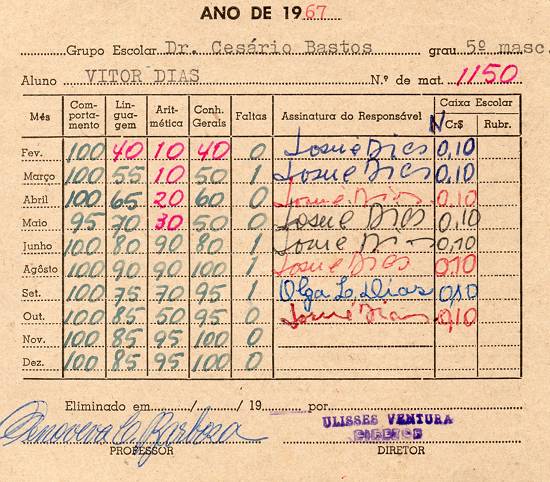 ANO DE 1967
Grupo Escolar Dr. Cesário Bastos grau 5º masc.
Aluno VITOR DIAS N.º de mat. 1150
Mês Comportamento Linguagem Aritmética Conh. Gerais Faltas Assinatura do Responsável Caixa Escolar
NCr$ Rubr.
Fev. 100 40 10 40 0 Josué Dias 0,10
Março 100 55 10 50 1 Josué Dias 0,10
Abril 100 65 20 60 0 Josué Dias 0,10
Maio 95 70 30 50 0 Josué Dias 0,10
Junho 100 80 90 80 1 Josué Dias 0,10
Agôsto 100 90 90 100 1 Josué Dias 0,10
Set. 100 75 70 95 1 Olga L. Dias 0,10
Out. 100 85 50 95 0 Josué Dias 0,10
Nov. 100 85 95 100 0
Dez. 100 85 95 100 0
Eliminado em / / 19 por
Genoveva C. Barbosa ULISSES VENTURA
DIRETOR
PROFESSOR DIRETOR